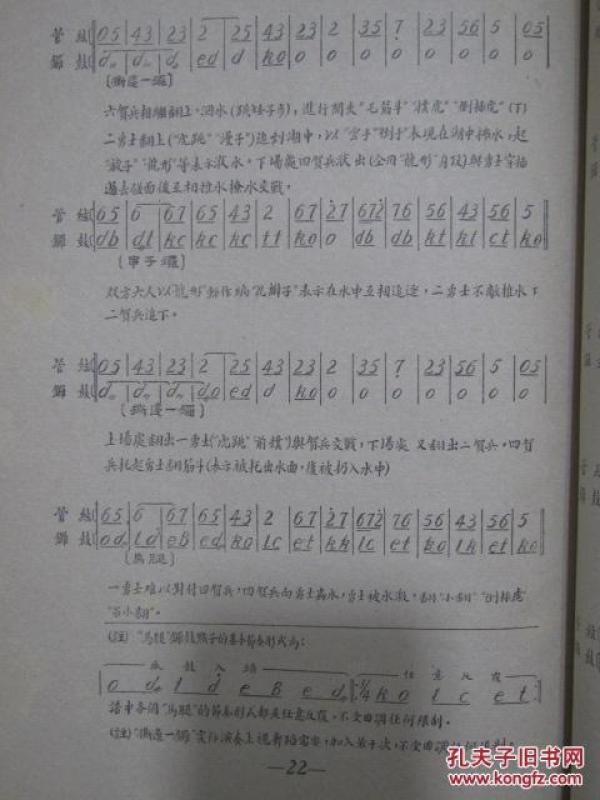 管絃 05 43 23 2 25 43 23 2 35 7 23 56 5 05
鑼鼓 ed d ko o o o o o o o
六賀兵相繼翻上,泅水(跌矮子步),進行開夾"毛筋斗""撲虎""倒插虎"(下)
二勇士翻上("虎跳""漫子")追到湖中,以
表現在湖中排水,起
"龍形"等表示泅水,下場處四賀兵泅出(全用"龍形"身段)與勇士穿插
過去碰面後互相推水撩水交戰,
管絃 65 6 67 65 43 2 67 27 672 76 56 43 56 5
鑼鼓 db dt kc kc kc tt ko o db db kt kt ct ko
双方六人以"龍形"動作編"花辮子"表示在水中互相追逐,二勇士不敵推水下
二賀兵追下。
管絃 05 43 23 2 25 43 23 2 35 7 23 56 5 05
鑼鼓 do ed d ko o o o o o o o
上場處翻出一勇士("虎跳""前撲")與賀兵交戰,下場處又翻出二賀兵,四賀
兵托起勇士翻筋斗(表示被托出水面,復被扔入水中)
管絃 65 6 67 65 43 2 67 27 672 76 56 43 56 5
鑼鼓 ko lc et kk lc et ko lk et ko
(馬腿)
一勇士难以對付四賀兵,四賀兵向勇士轟水,勇士被水激,翻"小翻""倒插虎"
"小翻"。
(註)"馬腿"鑼鼓點子的基本節奏形式為:
底鼓入頭 任意反復
3/4 ko l c et
譜中各個"馬腿"的節奏形式都是任意反復,不受曲調任何限制。
(註)"撕邊一鑼"實際演奏上視舞蹈需要,加入若干次,不受曲調
—22—
孔夫子旧书网
www.kongfz.com